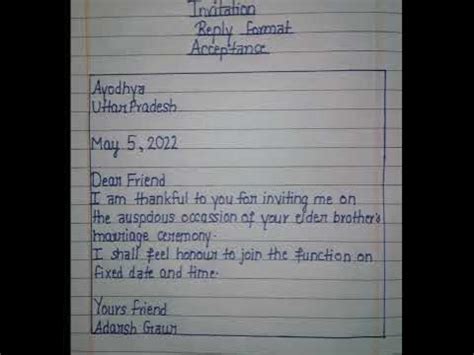 Invitation
Reply format
Acceptance
Ayodhya
Uttar Pradesh
May 5, 2022
Dear Friend
I am thankful to you for inviting me on
the auspdous occassion of your elder brother's
marriage ceremony.
I shall feel honour to join the function on
fixed date and time.
Yours friend
Adarsh Graur